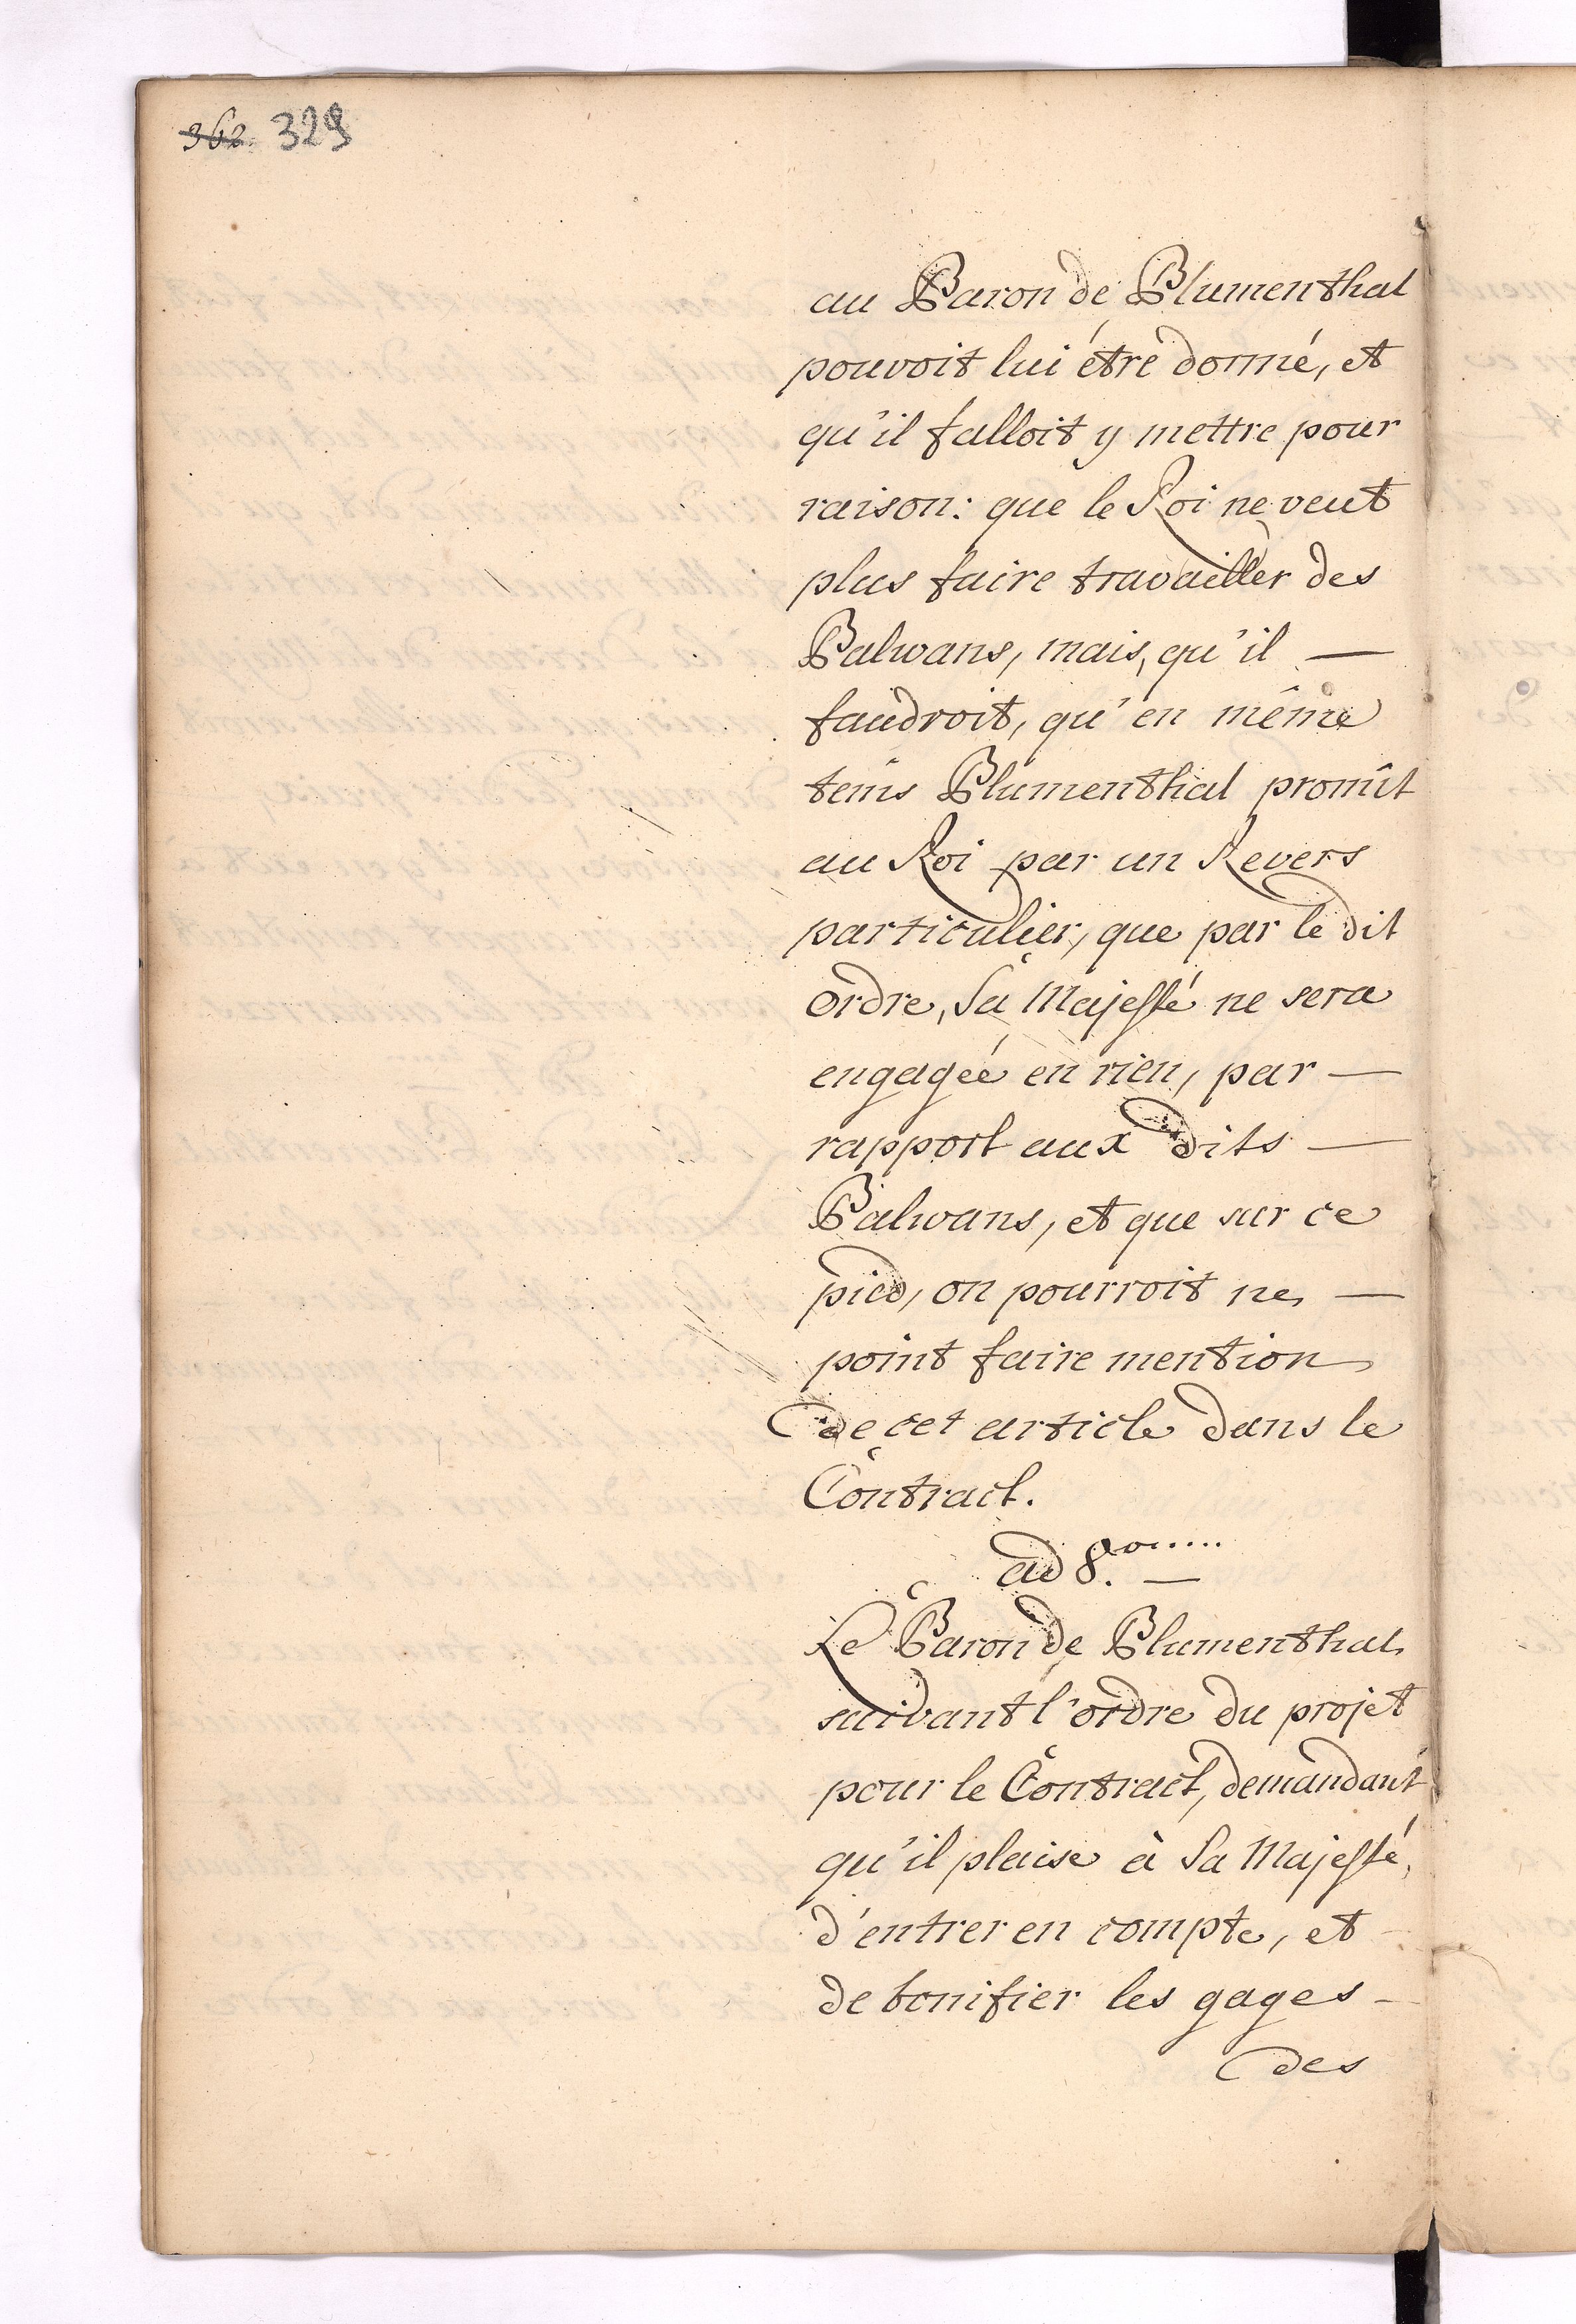 362. 329
au Baron de Blumenthal
pouvoit lui étre donné, et
qu'il falloit y mettre pour
raison: que le Roi ne veut
plus faire travailler des
Balwans, mais, qu'il —
faudroit, qu'en même
tems Blumenthal promît
au Roi par un Revers
particulier, que par le dit
ordre, Sa Majesté ne sera
engagée en rien, par —
rapport aux dits —
Balwans, et que sur ce
pied, on pourroit ne —
point faire mention
de cet article dans le
Contract.
ad 8.
Le Baron de Blumenthal
suivant l'ordre du projet
pour le Contract, demandant
qu'il plaise à Sa Majesté,
d'entrer en compte, et
de bonifier les gages —
des